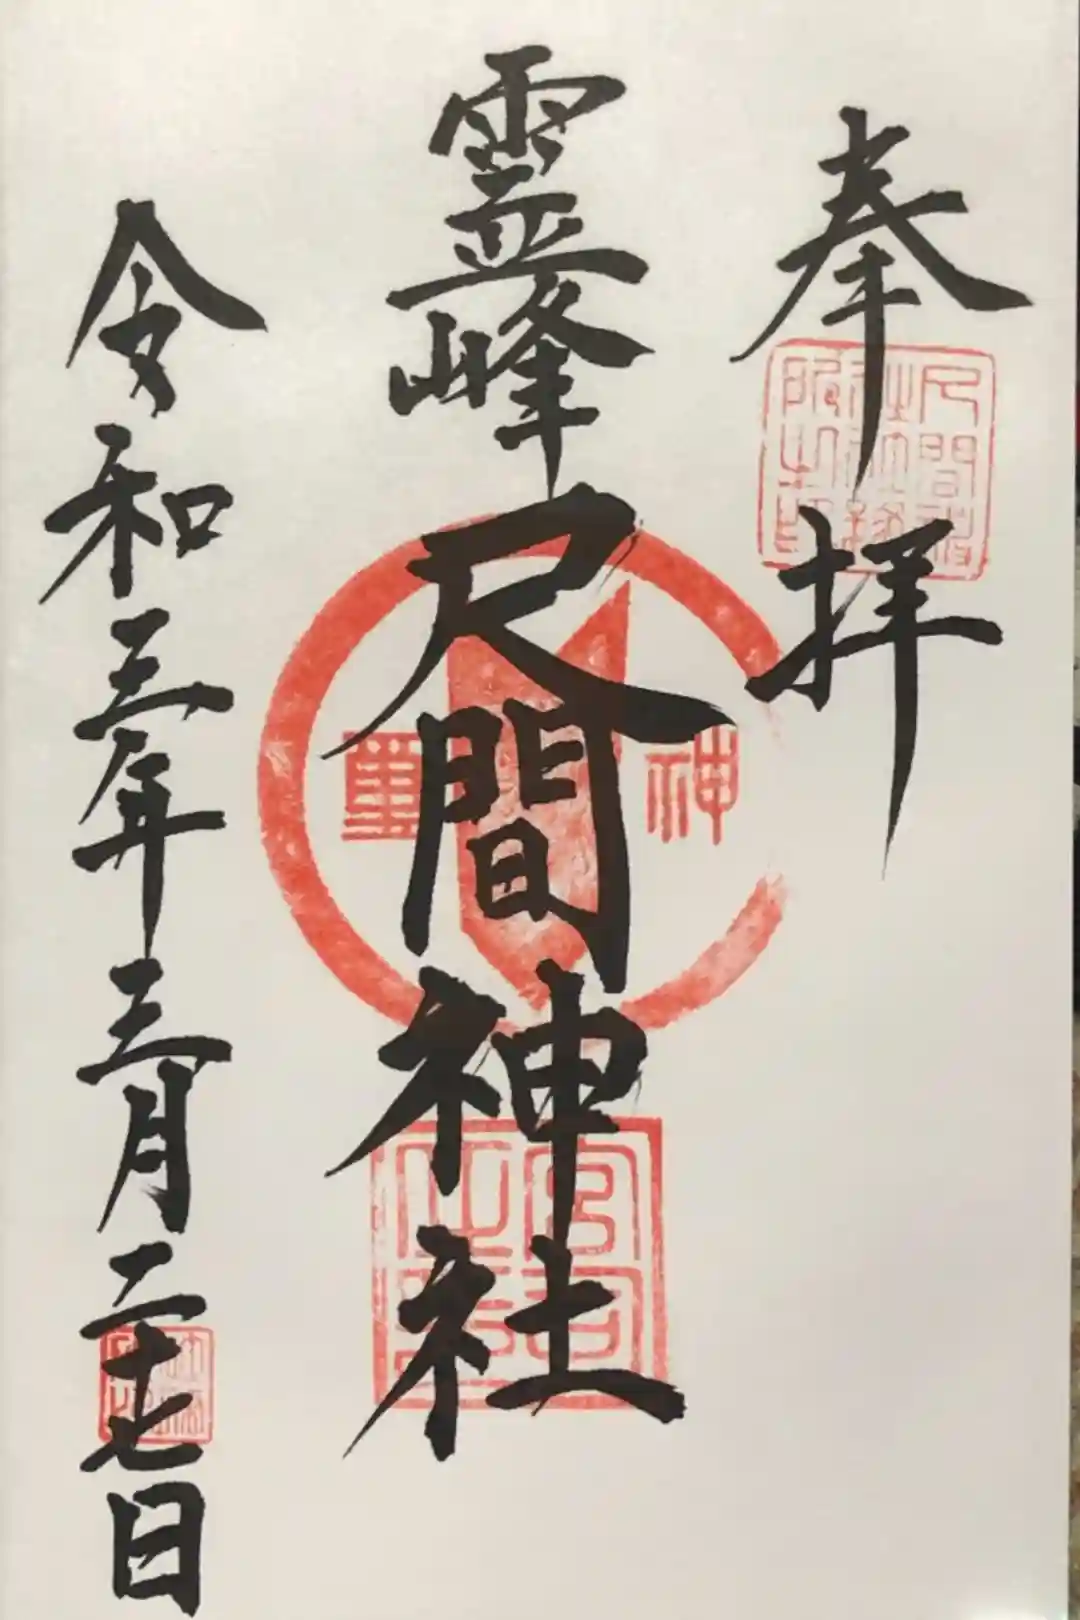 奉拝
霊峰尺間神社
神璽
令和三年三月二十七日